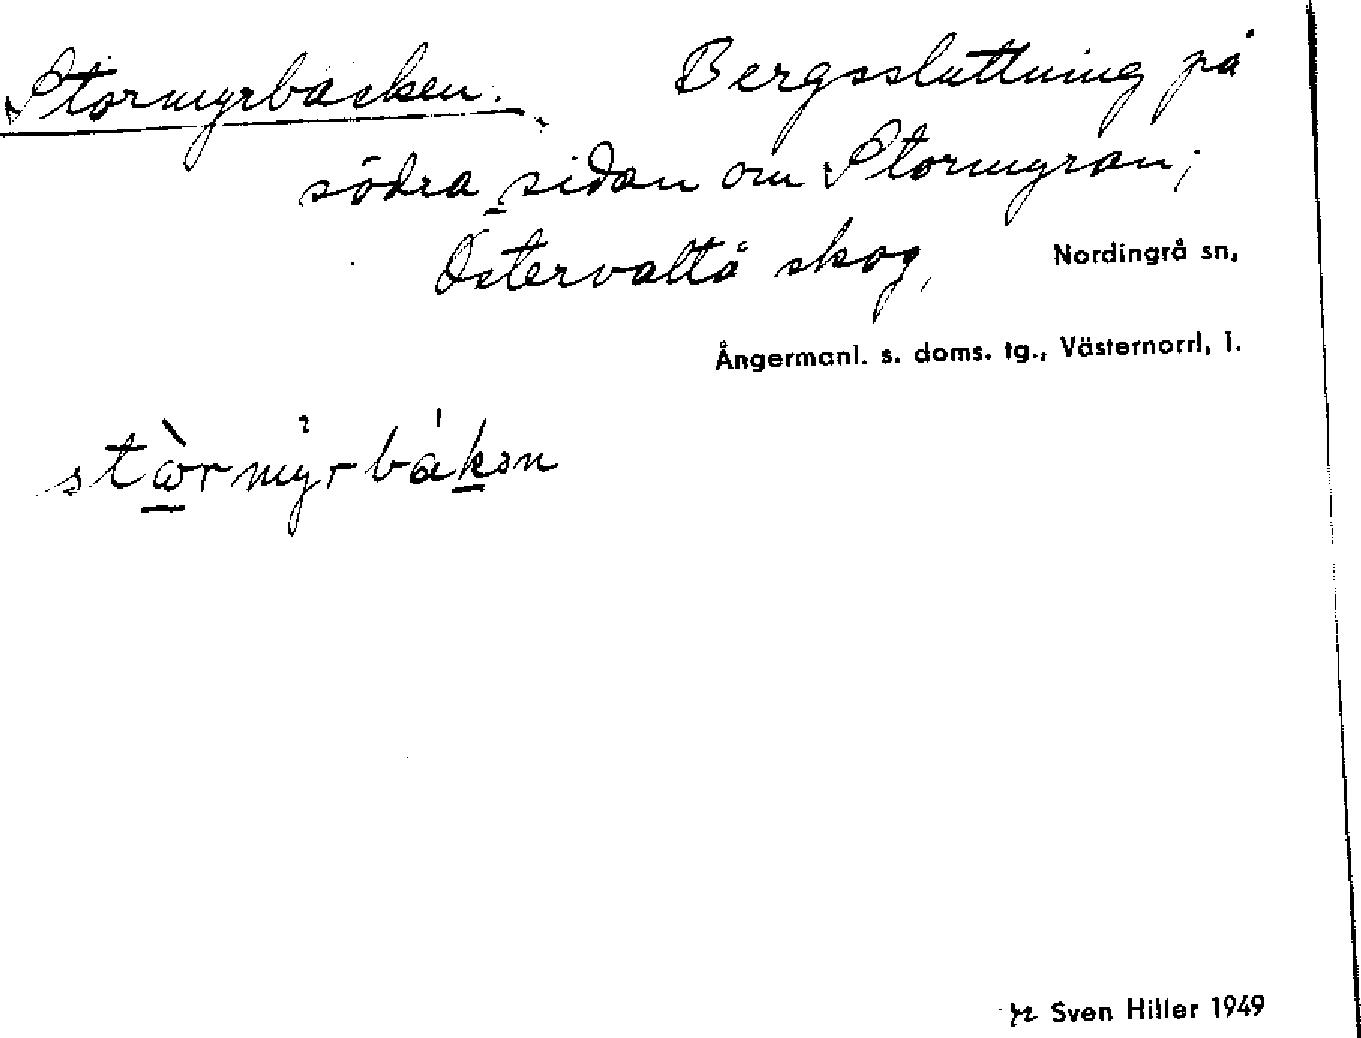 Stormyrbacken. Bergssluttning på
södra sidan om Stormyran;
Östervåltå skog, Nordingrå sn,
Ångermanl. s. doms. tg., Västernorrl, l.
Sven Hiller 1949